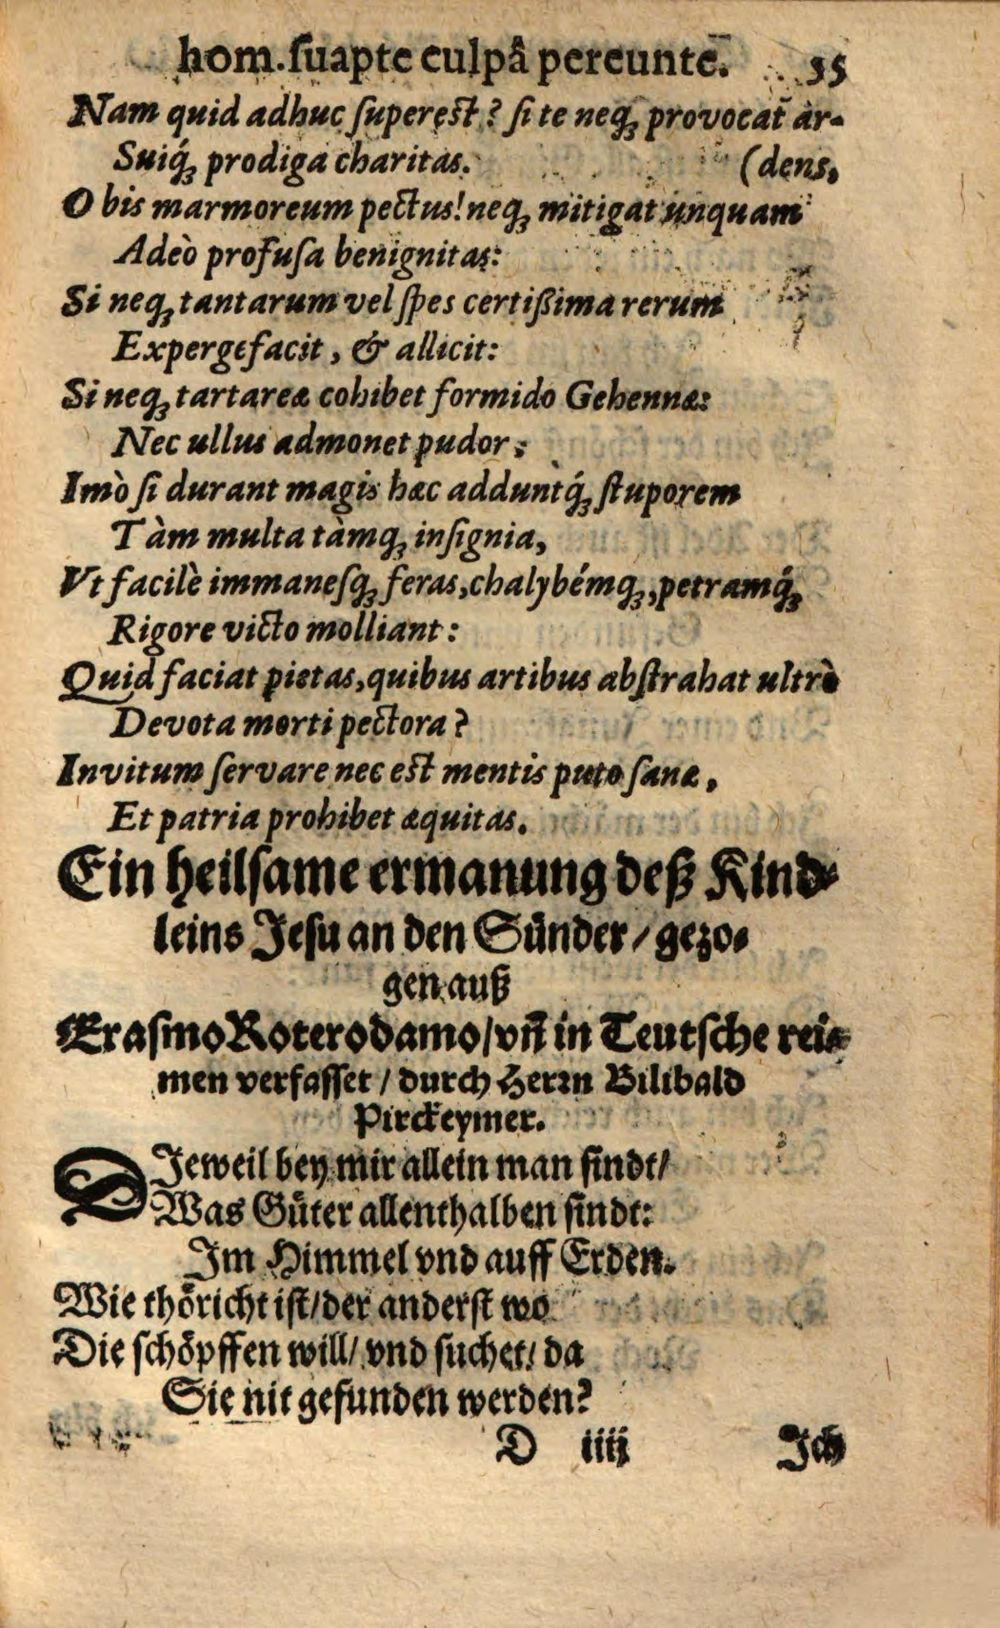 hom. ſuapte culpâ pereunte͂. 35
Nam quid adhuc ſupereſt? ſi te neq́ꝫ provocat ar-
Suiq́ꝫ prodiga charitas. (dens,
O bis marmoreum pectus! neqꝫ mitigat unquam
Adeò profuſa benignitas:
Si neqꝫ tantarum vel ſpes certißima rerum
Expergefacit, & allicit:
Si neqꝫ tartareæ cohibet formido Gehennæ:
Nec ullus admonet pudor:
Imò ſi durant magis hæc adduntq́ꝫ ſtuporem
Tàm multa tàmqꝫ inſignia,
Vt facilè immaneſqꝫ feras, chalybémqꝫ, petramq́ꝫ
Rigore victo molliant:
Quid faciat pietas, quibus artibus abſtrahat ultrò
Devota morti pectora?
Invitum ſervare nec eſt mentis puto ſanæ,
Et patria prohibet æquitas.
Ein heilſame ermanung deß Kind⸗
leins Jeſu an den Sünder / gezo⸗
gen auß
Eraſmo Roterodamo / vn̄ in Teutſche rei⸗
men verfaſſet / durch Herrn Bilibald
Pirckeymer.
DJeweil bey mir allein man findt /
Was Güter allenthalben ſindt:
Im Himmel vnd auff Erden.
Wie thöricht iſt / der anderſt wo
Die ſchöpffen will / vnd ſuchet / da
Sie nit gefunden werden?
D iiij Ich